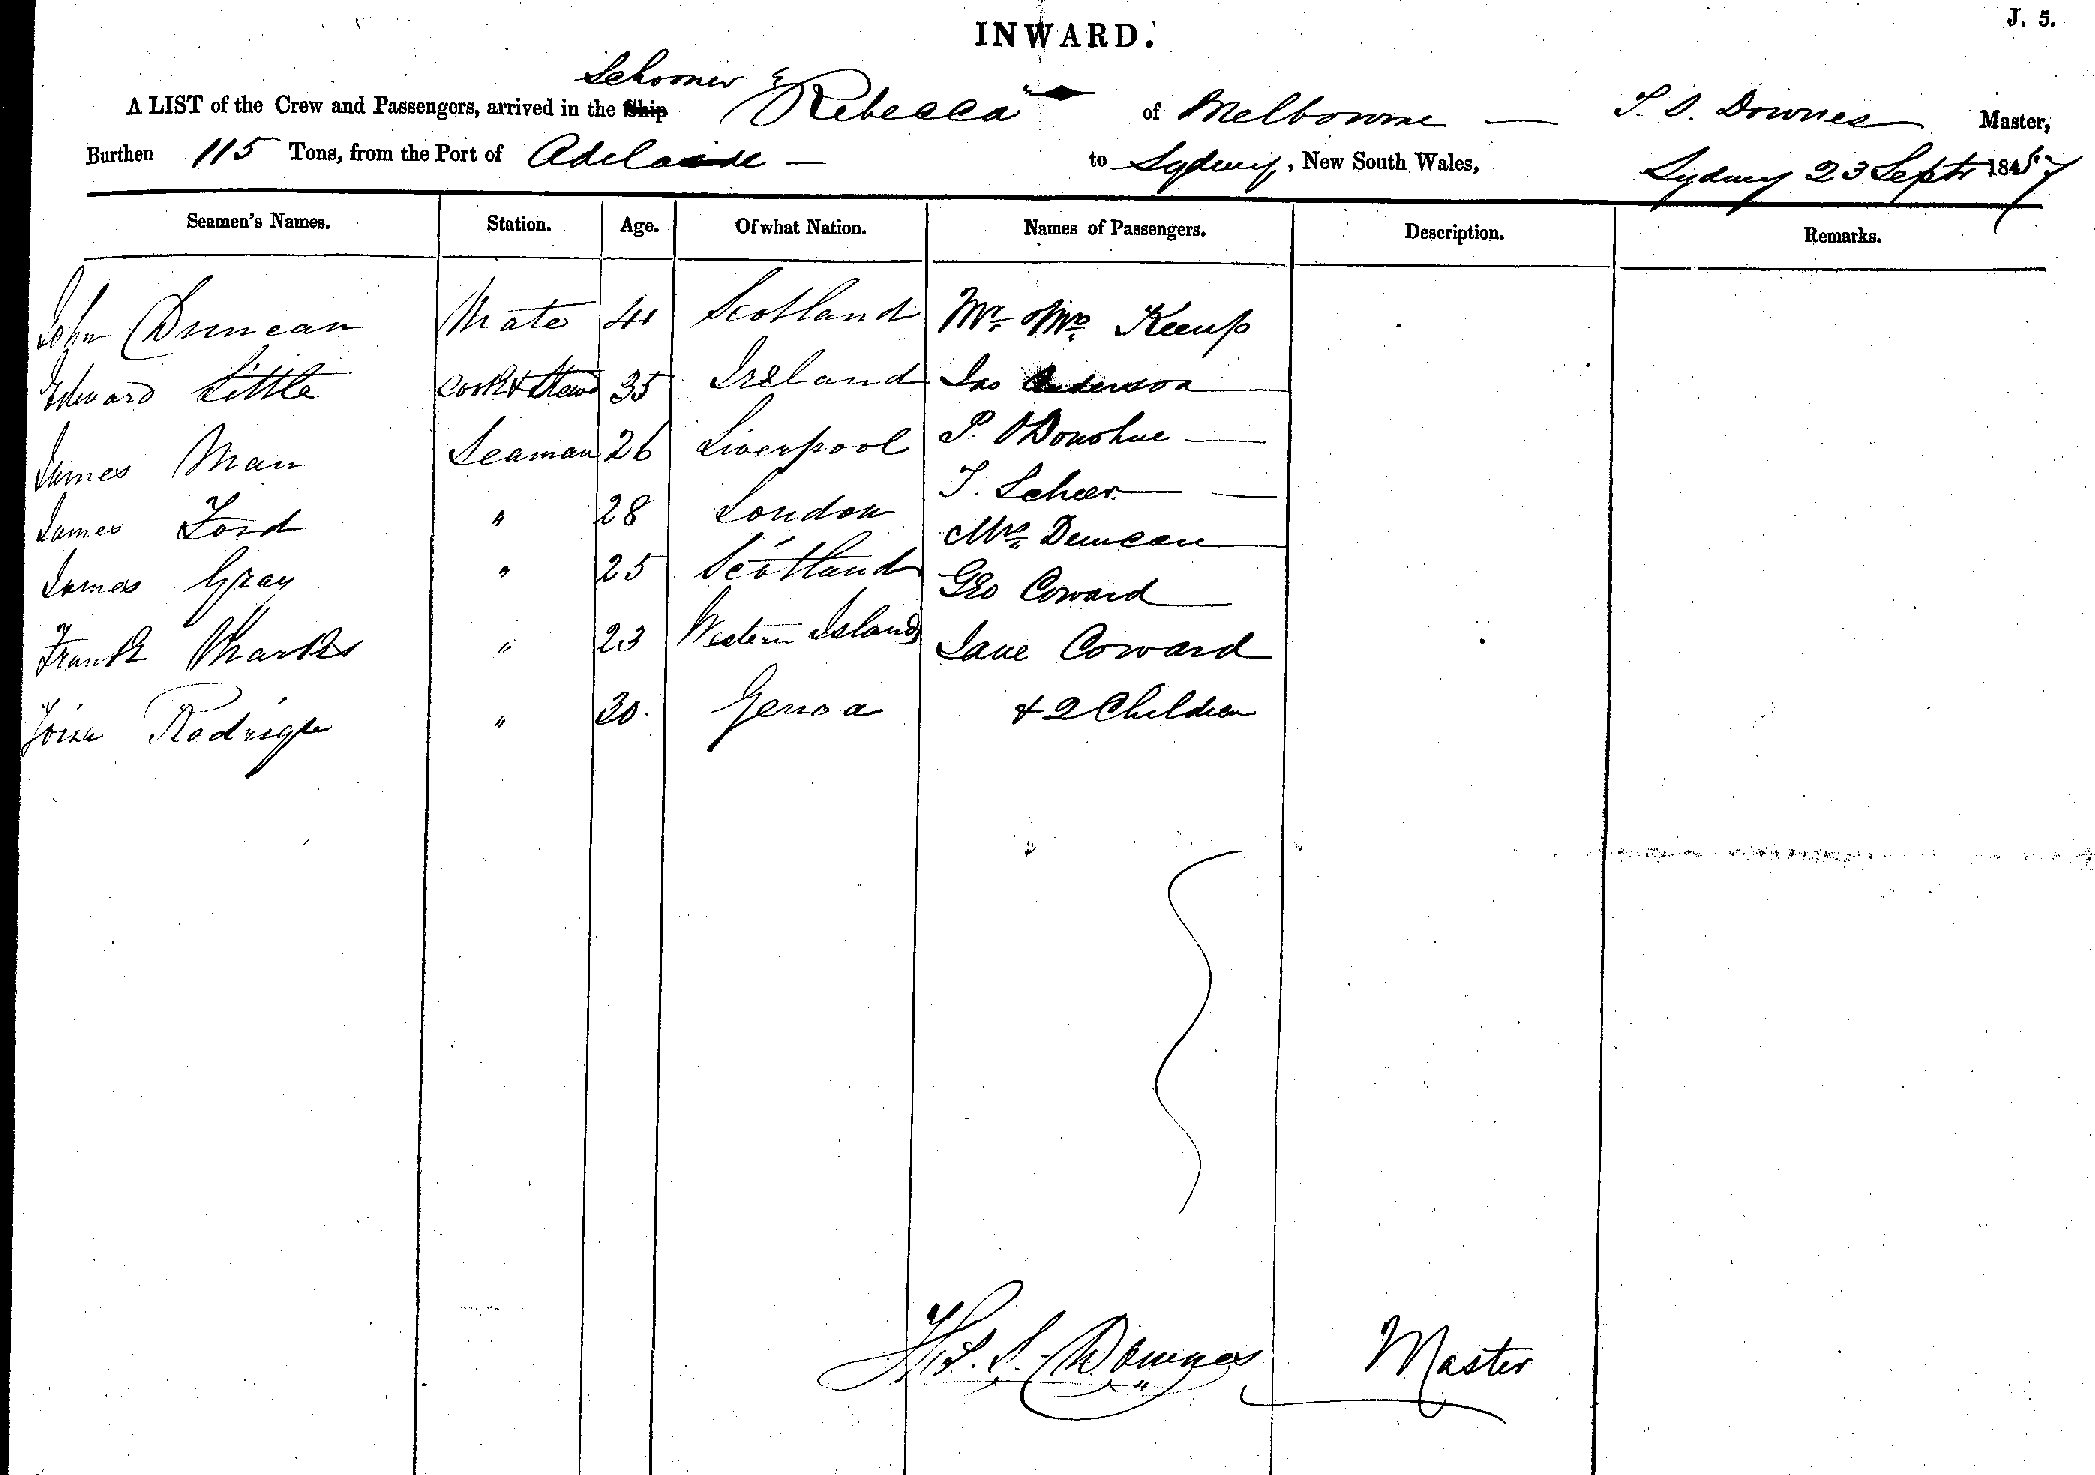 J. 5.
INWARD.
Schooner
A LIST of the Crew and Passengers, arrived in the Ship "Rebecca" of Melbourne — T. S. Downes Master,
Burthen 115 Tons, from the Port of Adelaide — to Sydney, New South Wales, Sydney 23 Septr 1857
Seamen's Names. Station. Age. Of what Nation. Names of Passengers. Description. Remarks.
John Duncan Mate 41 Scotland Mr. & Mrs. Keeup
Edward Little Cook & Stewd 35 Ireland Jas Anderson
James Man Seaman 26 Liverpool P. O'Donohue —
James Ford " 28 London T. Scheer —
Mrs. Duncan
James Gray " 25 Scotland Geo Coward
Frank Marks " 23 Western Islands Jane Coward
Rodrigu " 30. Genoa & 2 Children
Thos. S. Downes Master